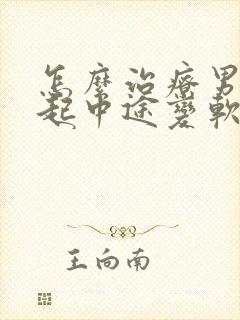 怎麼治療男
起中途變軟
王向南